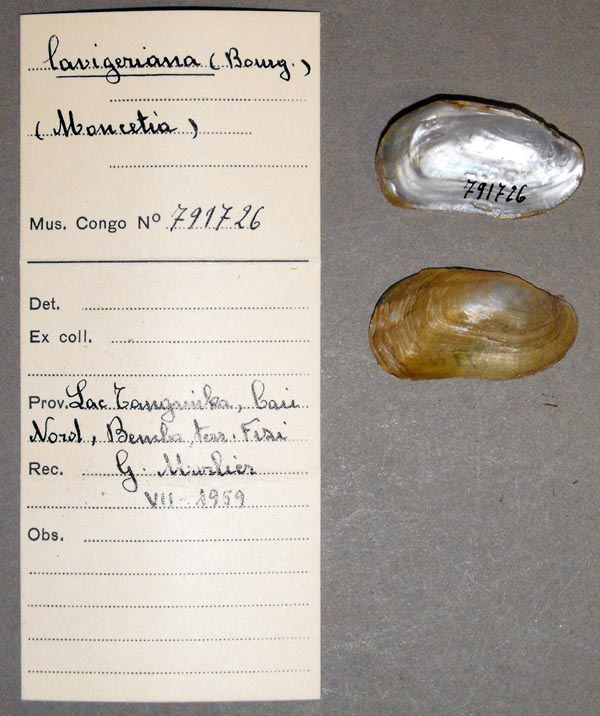 lavigeriana (Bourg.)
(Moncetia)
Mus. Congo Nº 791726
Det.
Ex coll.
Prov. Lac Tanganika, Baie
Nord, Bemba, terr. Fizi
Rec. G. Marlier
VII-1959
Obs.
791726